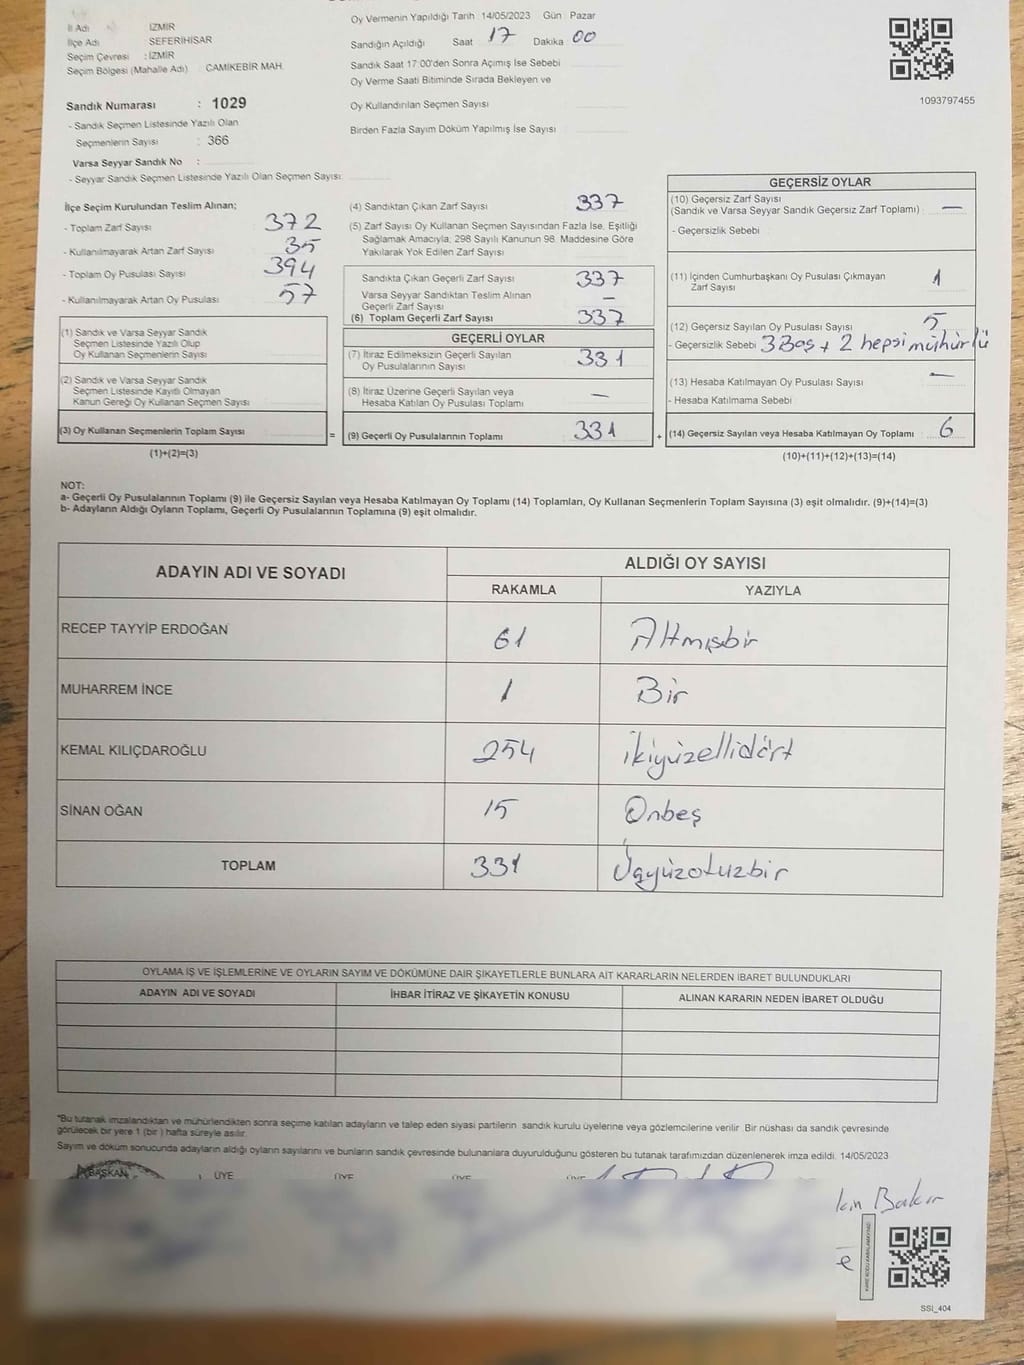 İl Adı İZMİR
İlçe Adı SEFERİHİSAR
Seçim Çevresi : İZMİR
Seçim Bölgesi (Mahalle Adı) : CAMİKEBİR MAH.
Sandık Numarası : 1029
- Sandık Seçmen Listesinde Yazılı Olan
Seçmenlerin Sayısı : 366
Varsa Seyyar Sandık No :
- Seyyar Sandık Seçmen Listesinde Yazılı Olan Seçmen Sayısı:
Oy Vermenin Yapıldığı Tarih 14/05/2023 Gün Pazar
Sandığın Açıldığı Saat 17 Dakika 00
Sandık Saat 17:00'den Sonra Açımış İse Sebebi
Oy Verme Saati Bitiminde Sırada Bekleyen ve
Oy Kullandırılan Seçmen Sayısı
Birden Fazla Sayım Döküm Yapılmış İse Sayısı
1093797455
İlçe Seçim Kurulundan Teslim Alınan;
- Toplam Zarf Sayısı 372
- Kullanılmayarak Artan Zarf Sayısı 35
- Toplam Oy Pusulası Sayısı 394
- Kullanılmayarak Artan Oy Pusulası 57
(1) Sandık ve Varsa Seyyar Sandık
Seçmen Listesinde Yazılı Olup
Oy Kullanan Seçmenlerin Sayısı
(2) Sandık ve Varsa Seyyar Sandık
Seçmen Listesinde Kayıtlı Olmayan
Kanun Gereği Oy Kullanan Seçmen Sayısı
(3) Oy Kullanan Seçmenlerin Toplam Sayısı
=
(1)+(2)=(3)
(4) Sandıktan Çıkan Zarf Sayısı 337
(5) Zarf Sayısı Oy Kullanan Seçmen Sayısından Fazla İse, Eşitliği
Sağlamak Amacıyla; 298 Sayılı Kanunun 98. Maddesine Göre
Yakılarak Yok Edilen Zarf Sayısı
Sandıkta Çıkan Geçerli Zarf Sayısı 337
Varsa Seyyar Sandıktan Teslim Alınan
Geçerli Zarf Sayısı –
(6) Toplam Geçerli Zarf Sayısı 337
GEÇERLİ OYLAR
(7) İtiraz Edilmeksizin Geçerli Sayılan
Oy Pusulalarının Sayısı 331
(8) İtiraz Üzerine Geçerli Sayılan veya
Hesaba Katılan Oy Pusulası Toplamı –
(9) Geçerli Oy Pusulalarının Toplamı 331
+
GEÇERSİZ OYLAR
(10) Geçersiz Zarf Sayısı
(Sandık ve Varsa Seyyar Sandık Geçersiz Zarf Toplamı) –
- Geçersizlik Sebebi
(11) İçinden Cumhurbaşkanı Oy Pusulası Çıkmayan
Zarf Sayısı 1
(12) Geçersiz Sayılan Oy Pusulası Sayısı 5
- Geçersizlik Sebebi 3 Boş + 2 hepsi mühürlü
(13) Hesaba Katılmayan Oy Pusulası Sayısı –
- Hesaba Katılmama Sebebi
(14) Geçersiz Sayılan veya Hesaba Katılmayan Oy Toplamı 6
(10)+(11)+(12)+(13)=(14)
NOT:
a- Geçerli Oy Pusulalarının Toplamı (9) ile Geçersiz Sayılan veya Hesaba Katılmayan Oy Toplamı (14) Toplamları, Oy Kullanan Seçmenlerin Toplam Sayısına (3) eşit olmalıdır. (9)+(14)=(3)
b- Adayların Aldığı Oyların Toplamı, Geçerli Oy Pusulalarının Toplamına (9) eşit olmalıdır.
ADAYIN ADI VE SOYADI ALDIĞI OY SAYISI
RAKAMLA YAZIYLA
RECEP TAYYİP ERDOĞAN 61 Altmışbir
MUHARREM İNCE 1 Bir
KEMAL KILIÇDAROĞLU 254 İkiyüzellidört
SİNAN OĞAN 15 Onbeş
TOPLAM 331 Üçyüzotuzbir
OYLAMA İŞ VE İŞLEMLERİNE VE OYLARIN SAYIM VE DÖKÜMÜNE DAİR ŞİKAYETLERLE BUNLARA AİT KARARLARIN NELERDEN İBARET BULUNDUKLARI
ADAYIN ADI VE SOYADI İHBAR İTİRAZ VE ŞİKAYETİN KONUSU ALINAN KARARIN NEDEN İBARET OLDUĞU
*Bu tutanak imzalandıktan ve mühürlendikten sonra seçime katılan adayların ve talep eden siyasi partilerin sandık kurulu üyelerine veya gözlemcilerine verilir. Bir nüshası da sandık çevresinde
görülecek bir yere 1 (bir) hafta süreyle asılır.
Sayım ve döküm sonucunda adayların aldığı oyların sayılarını ve bunların sandık çevresinde bulunanlara duyurulduğunu gösteren bu tutanak tarafımızdan düzenlenerek imza edildi. 14/05/2023
BAŞKAN ÜYE ÜYE ÜYE ÜYE
SSI_404